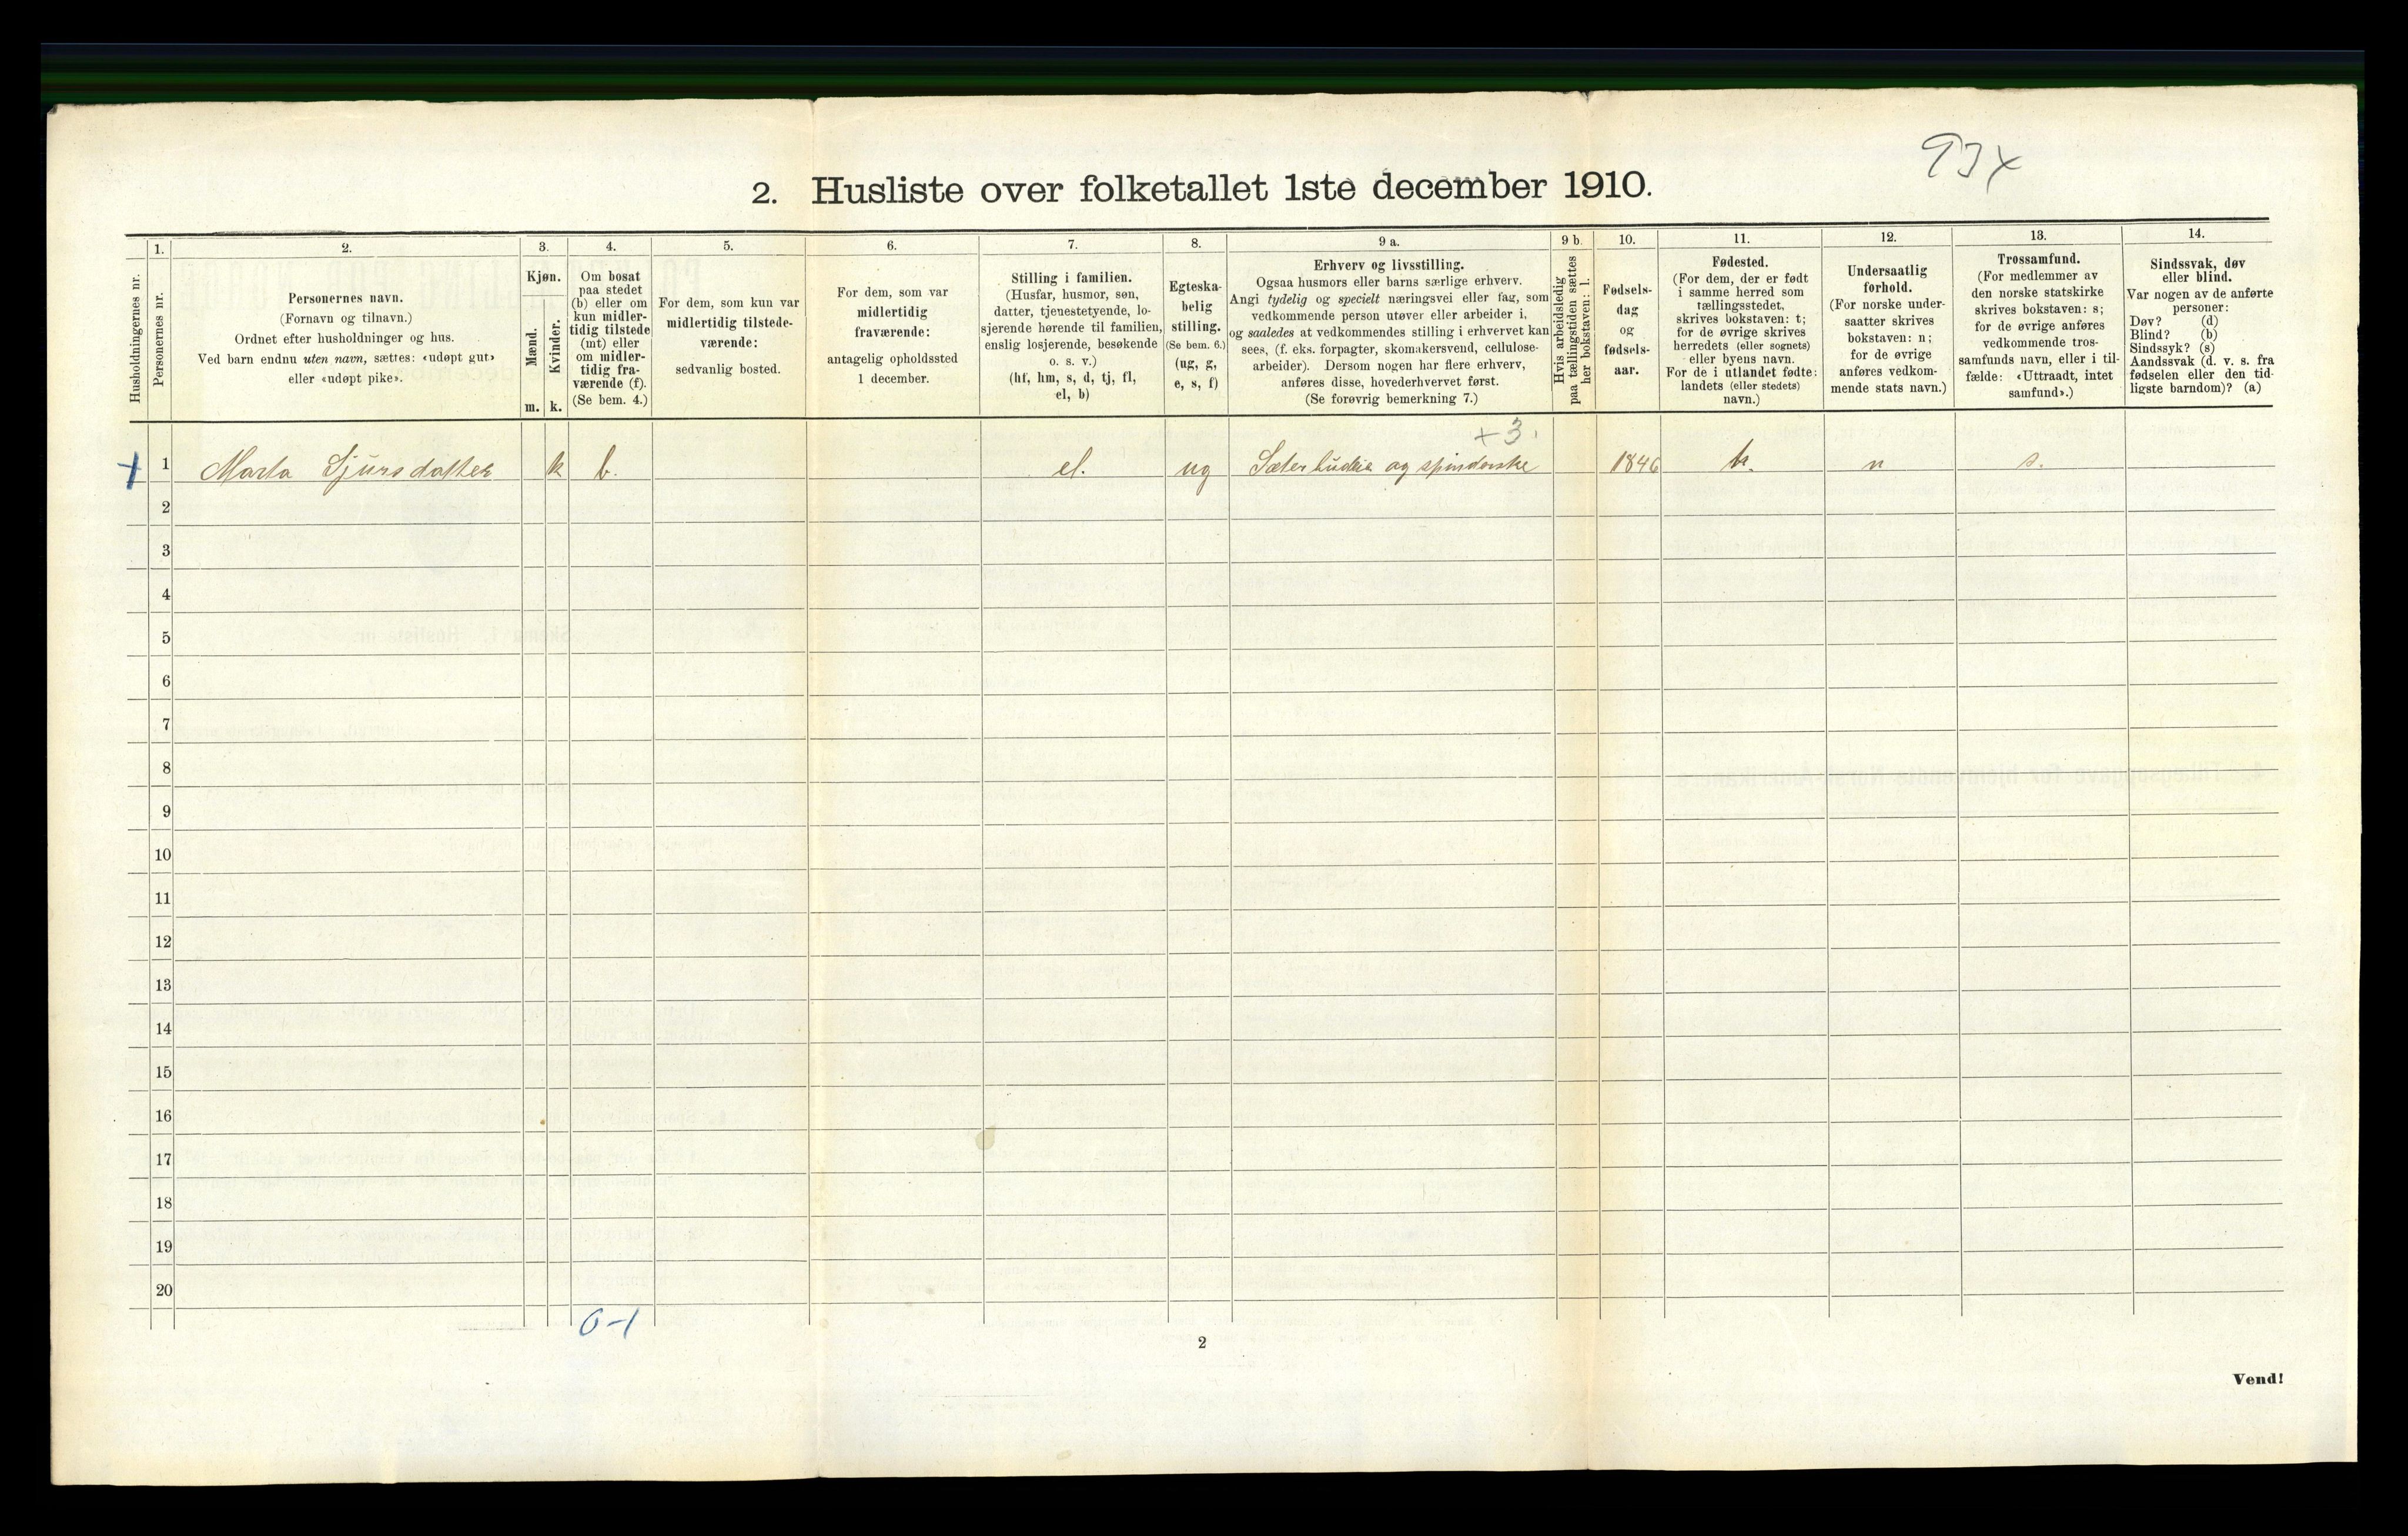 93x
2. Husliste over folketallet 1ste december 1910.
Husholdningernes nr.
1.
Personernes nr.
2.
Personernes navn.
(Fornavn og tilnavn.)
Ordnet efter husholdninger og hus.
Ved barn endnu uten navn, sættes: «udøpt gut»
eller «udøpt pike».
3.
Kjøn.
Mænd.
Kvinder.
m. k.
4.
Om bosat
paa stedet
(b) eller om
kun midler-
tidig tilstede
(mt) eller
om midler-
tidig fra-
værende (f).
(Se bem. 4.)
5.
For dem, som kun var
midlertidig tilstede-
værende:
sedvanlig bosted.
6.
For dem, som var
midlertidig
fraværende:
antagelig opholdssted
1 december.
7.
Stilling i familien.
(Husfar, husmor, søn,
datter, tjenestetyende, lo-
sjerende hørende til familien,
enslig losjerende, besøkende
o. s. v.)
(hf, hm, s, d, tj, fl,
el, b)
8.
Egteska-
belig
stilling.
(Se bem. 6.)
(ug, g,
e, s, f)
9 a.
Erhverv og livsstilling.
Ogsaa husmors eller barns særlige erhverv.
Angi tydelig og specielt næringsvei eller fag, som
vedkommende person utøver eller arbeider i,
og saaledes at vedkommendes stilling i erhvervet kan
sees, (f. eks. forpagter, skomakersvend, cellulose-
arbeider). Dersom nogen har flere erhverv,
anføres disse, hovederhvervet først.
(Se forøvrig bemerkning 7.)
9 b.
Hvis arbeidsledig
paa tællingstiden sættes
her bokstaven: l.
10.
Fødsels-
dag
og
fødsels-
aar.
11.
Fødested.
(For dem, der er født
i samme herred som
tællingsstedet,
skrives bokstaven: t;
for de øvrige skrives
herredets (eller sognets)
eller byens navn.
For de i utlandet fødte:
landets (eller stedets)
navn.)
12.
Undersaatlig
forhold.
(For norske under-
saatter skrives
bokstaven: n;
for de øvrige
anføres vedkom-
mende stats navn.)
13.
Trossamfund.
(For medlemmer av
den norske statskirke
skrives bokstaven: s;
for de øvrige anføres
vedkommende tros-
samfunds navn, eller i til-
fælde: «Uttraadt, intet
samfund».)
14.
Sindssvak, døv
eller blind.
Var nogen av de anførte
personer:
Døv? (d)
Blind? (b)
Sindssyk? (s)
Aandssvak (d. v. s. fra
fødselen eller den tid-
ligste barndom)? (a)
+3.
+ 1 Marta Sjursdatter k b. el. ug og spinderske 1846 n s.
2
3
4
5
6
7
8
9
10
11
12
13
14
15
16
17
18
19
20
0-1
2
Vend!